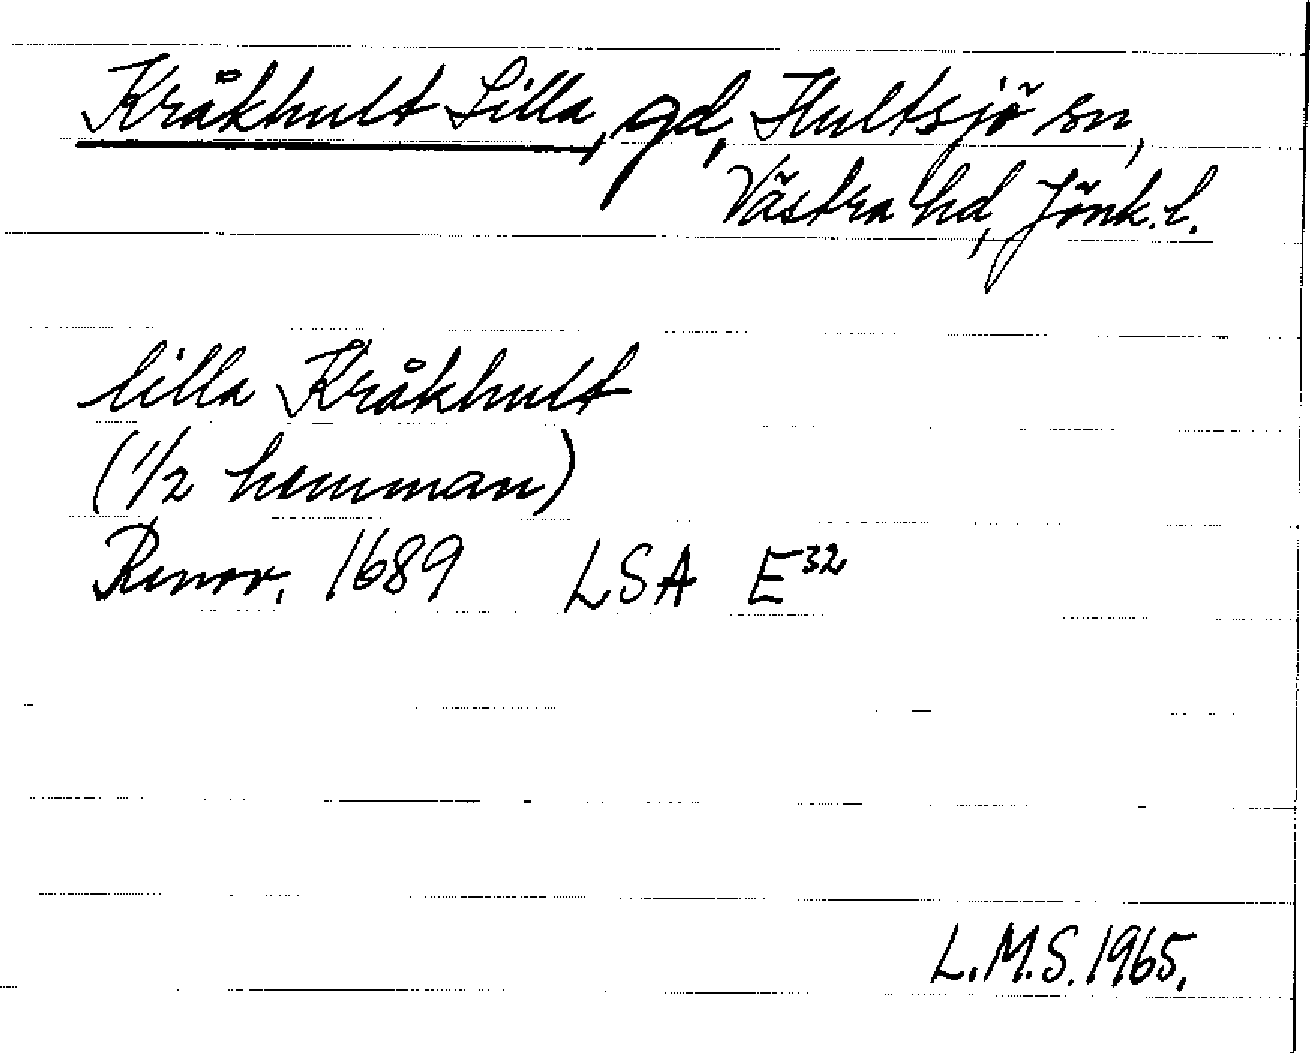 Kråkhult Lilla, gd, Hultsjö sn,
Västra hd, Jönk.l.
lilla Kråkhult
(1/2 hemman)
Renov. 1689 LSA E³²
L.M.S. 1965.